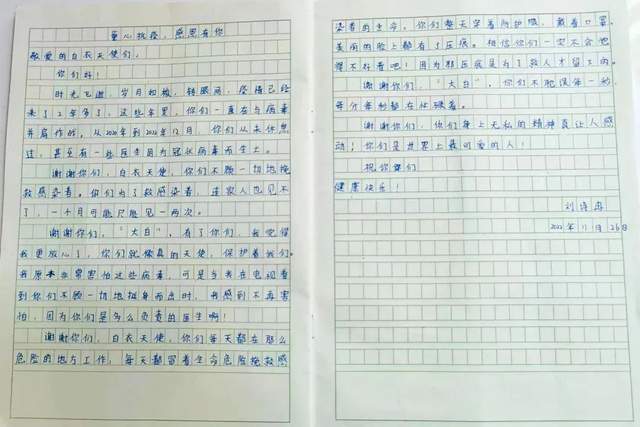 童心抗疫，感恩有你
敬爱的白衣天使们：
你们好！
时光飞逝，岁月如梭，转眼间，疫情已经
来了2年多了，这些年里，你们一直在与病毒
并肩作战。从2020年到2022年12月，你们从未休息
过，甚至有一些医生因为冠状病毒而
谢谢你们，白衣天使，你们不顾一切地挽
救感染者。你们为了救感染者，连家人也见不
了，一个月可能只能见一两次。
谢谢你们，“大白”，有了你们，我吧觉得
我更放心了，你们就像真的天使，保护着我们。
我原来非常害怕这些病毒，可是当我在电视看
到你们不顾一切地挺身而出时，我感到不再害
怕，因为你们是多么负责的医生啊！
谢谢你们，白衣天使，你们每天都在那么
危险的地方工作，每天都冒着生命危险挽救感
染者的生命，你们整天穿着防护服，戴着口罩，
美丽的脸上都有了压痕。相信你们一定不会觉
得不好看吧！因为那压痕是为了救人才留下的。
谢谢你们，“大白”，你们不耽误任一秒，
每分每秒都在忙碌着。
谢谢你们，你们身上无私的精神真让人感
动；你们是世界上最可爱的人！
祝你们
健康快乐！
2022年11月26日